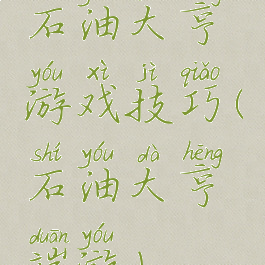 石油大亨
yóu xì jì qiǎo
游戏技巧(
shí yóu dà hēng
石油大亨
duān yóu
端游)